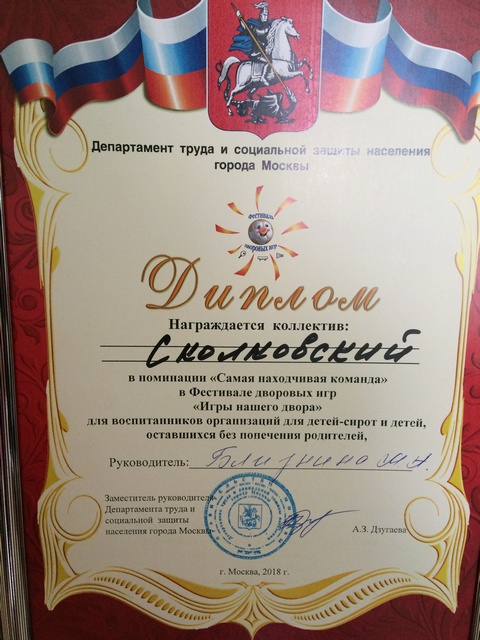 Департамент труда и социальной защиты населения
города Москвы
Фестиваль
дворовых игр
Диплом
Награждается коллектив:
Сколковский
в номинации «Самая находчивая команда»
в Фестивале дворовых игр
«Игры нашего двора»
для воспитанников организаций для детей-сирот и детей,
оставшихся без попечения родителей,
Руководитель:
Заместитель руководителя
Департамента труда и
социальной защиты
населения города Москвы
А.З. Дзугаева
г. Москва, 2018 г.